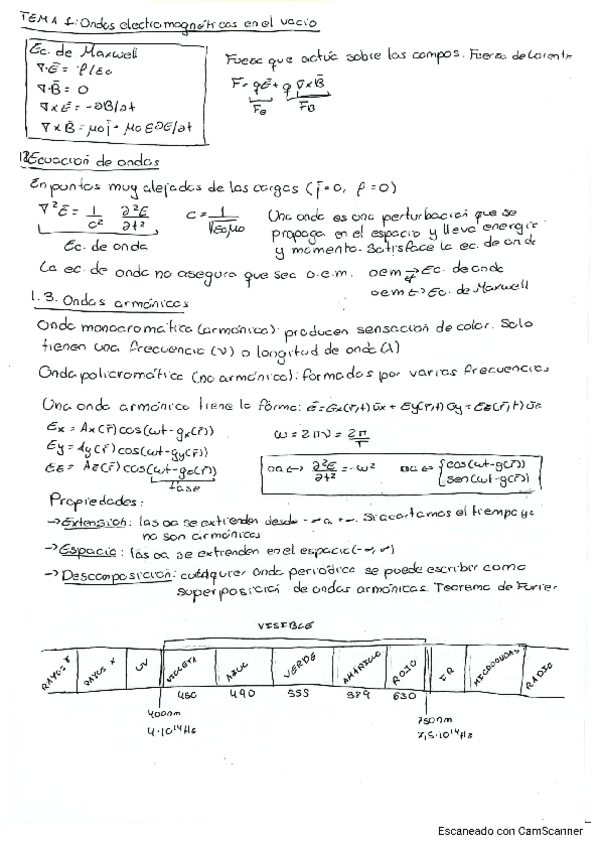 TEMA 1: Ondas electromagnéticas en el vacío
Ec. de Maxwell
∇·Ē = ρ/ε₀
∇·B̄ = 0
∇×Ē = -∂B/∂t
∇×B̄ = μ₀j̄ + μ₀ε∂E/∂t
Fuerza que actúa sobre los campos. Fuerza de Lorentz
F̄ = qĒ + q v̄×B̄
Fe FB
Ecuación de ondas
En puntos muy alejados de las cargas (j̄=0, ρ=0)
∇²Ē = 1/c² ∂²E/∂t² c = 1/√ε₀μ₀
Ec. de onda
Una onda es una perturbación que se
propaga en el espacio y lleva energía
y momento. Satisface la ec. de onda
La ec. de onda no asegura que sea o.e.m. oem ⇸ Ec. de onda
oem ↔ Ec. de Maxwell
1.3. Ondas armónicas
Onda monocromática (armónica): producen sensación de color. Solo
tienen una frecuencia (ν) o longitud de onda (λ)
Onda policromática (no armónica): formadas por varias frecuencias
Una onda armónica tiene la forma: Ē = Ex(r̄,t) ūx + Ey(r̄,t) ūy + Ez(r̄,t) ūz
Ex = Ax(r̄) cos(ωt - gx(r̄))
Ey = Ay(r̄) cos(ωt - gy(r̄))
Ez = Az(r̄) cos(ωt - gz(r̄))
fase
ω = 2πν = 2π/T
oa ↔ ∂²E/∂t² = -ω² oa ↔ {cos(ωt - g(r̄))
sen(ωt - g(r̄))
Propiedades:
→ Extensión: las oa se extienden desde -∞ a +∞. Si acortamos el tiempo ya
no son armónicas
→ Espacio: las oa se extienden en el espacio (-∞, ∞)
→ Descomposición: cualquier onda periódica se puede escribir como
superposición de ondas armónicas. Teorema de Furier
VISIBLE
RAYOS γ RAYOS X UV VIOLETA AZUL VERDE AMARILLO ROJO IR MICROONDAS RADIO
450 490 555 589 630
400nm 750nm
4·10¹⁴Hz 7,5·10¹⁴Hz
Escaneado con CamScanner